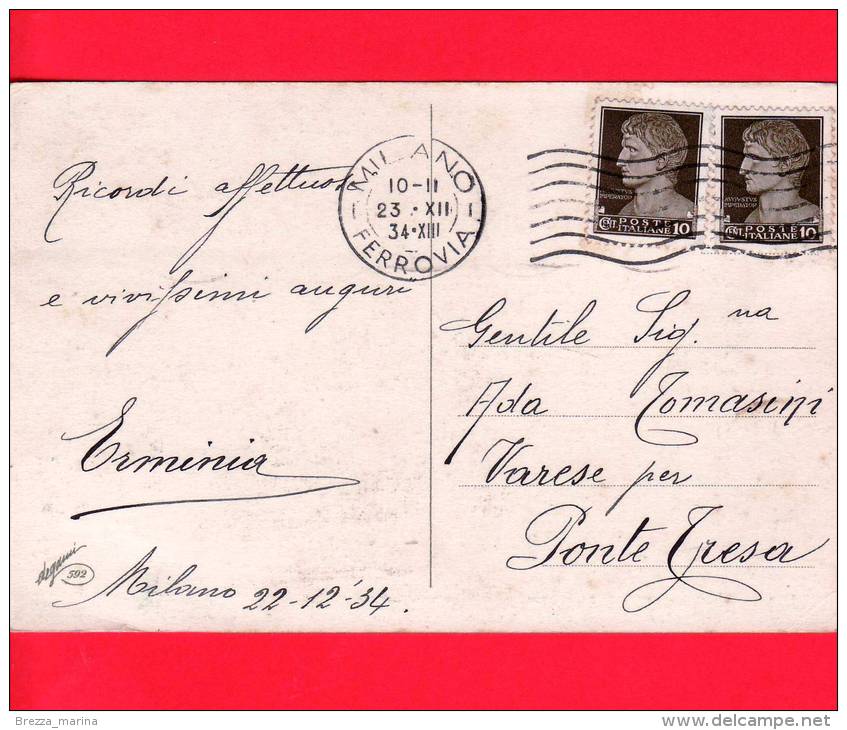 Ricordi affettuosi
e vivissimi auguri
Erminia
Milano 22-12-'34.
degami
592
MILANO
10-11
23 • XII
34•XIII
FERROVIA
AVGVSTVS
IMPERATOR
CENT. POSTE ITALIANE 10
AVGVSTVS
IMPERATOR
CENT. POSTE ITALIANE 10
Gentile Sig.na
Ada Tomasini
Varese per
Ponte Tresa
Brezza_marina
www.delcampe.net